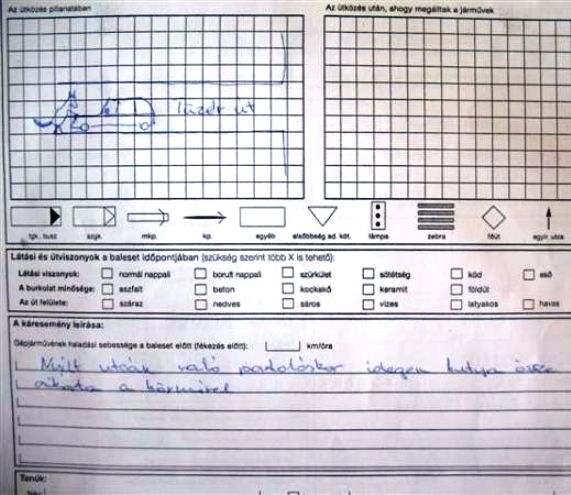 Az ütközés pillanatában
Az ütközés után, ahogy megálltak a járművek
tgk. busz szgk. mkp. kp. egyéb elsőbbség ad. köt. lámpa zebra főút egyir. utca
Látási és útviszonyok a baleset időpontjában (szükség szerint több X is tehető):
Látási viszonyok: normál nappali borult nappali szürkület sötétség köd eső
A burkolat minősége: aszfalt beton kockakő keramit földút
Az út felülete: száraz nedves sáros vizes latyakos havas
A káresemény leírása:
Gépjárművének haladási sebessége a baleset előtt (fékezés előtt): km/óra
Nyílt utcán való parkoláskor idegen kutya össze
a
Tanúk:
Név: